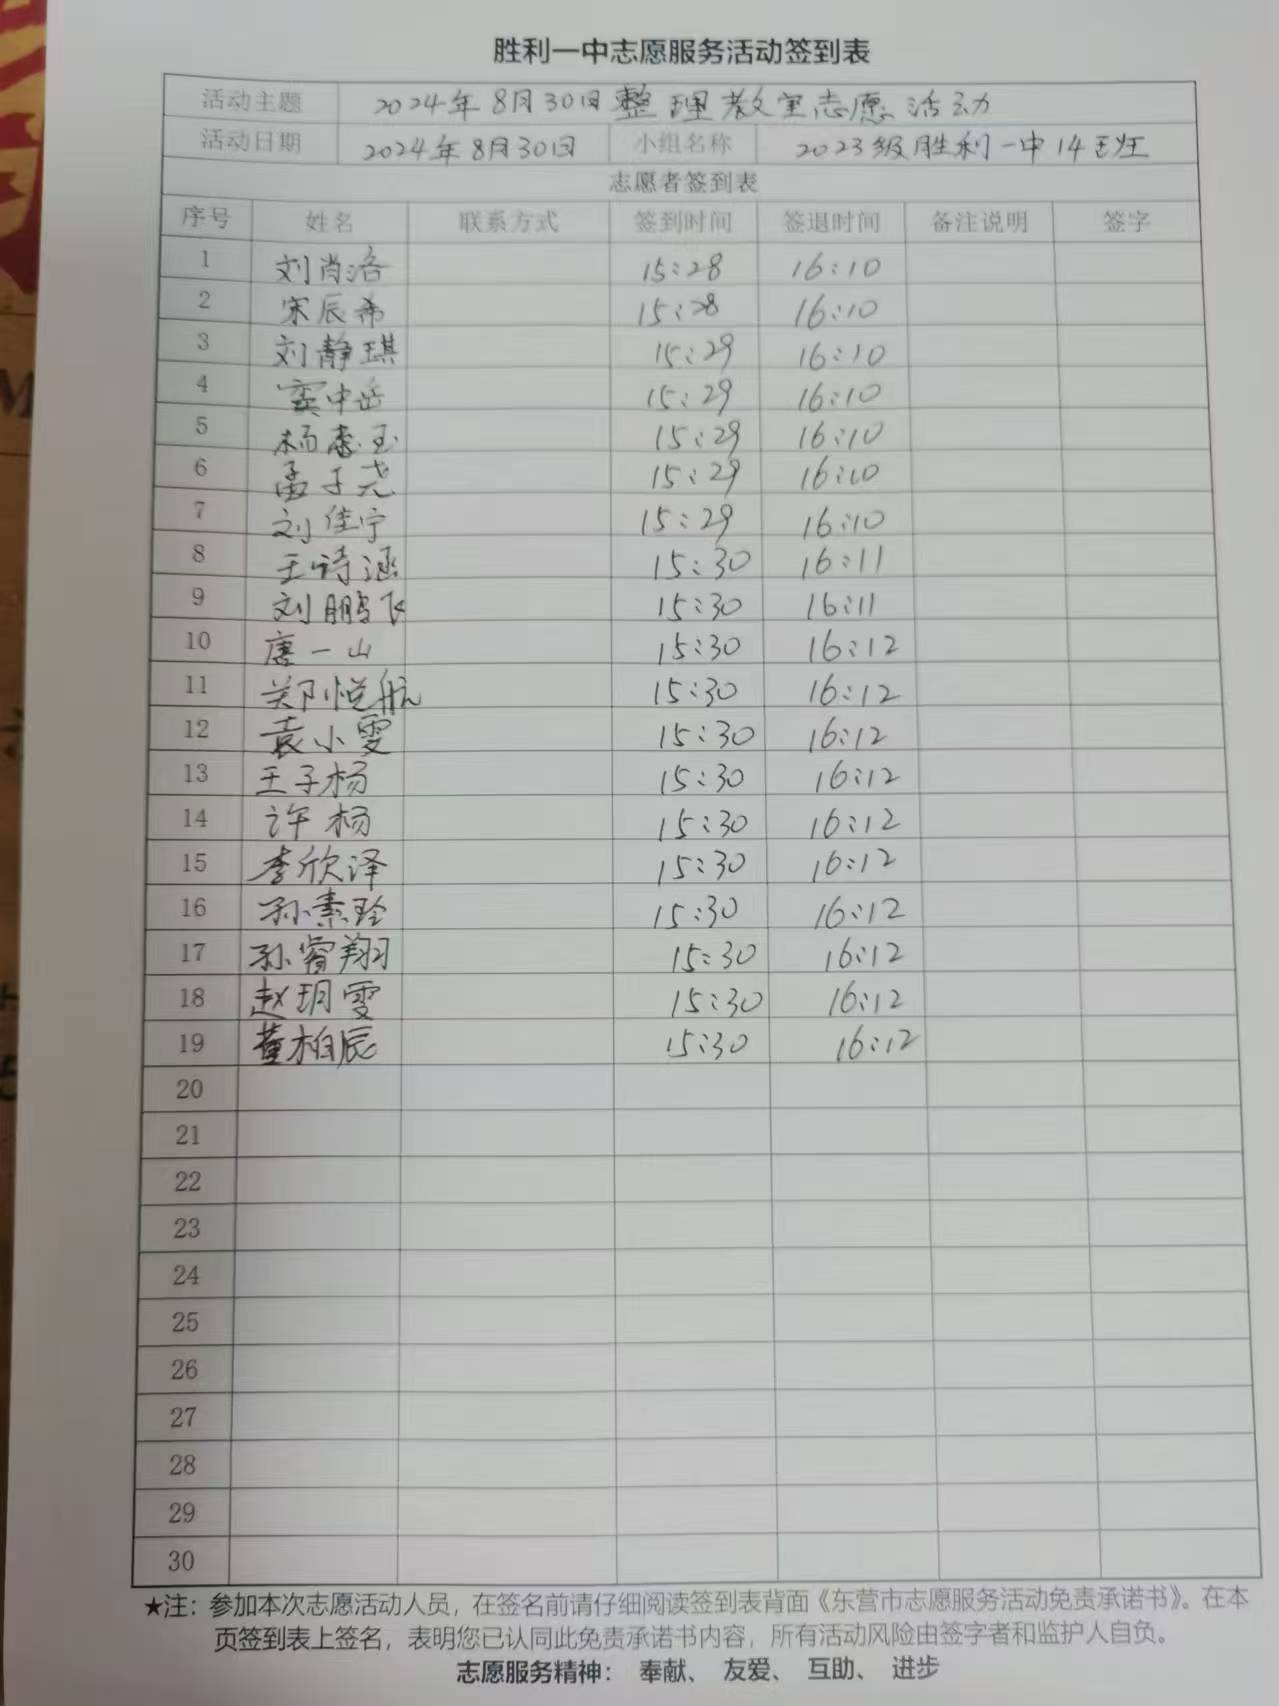 胜利一中志愿服务活动签到表
活动主题 2024年8月30日整理教室志愿活动
活动日期 2024年8月30日 小组名称 2023级胜利一中14班
志愿者签到表
序号 姓名 联系方式 签到时间 签退时间 备注说明 签字
1 刘肖洛 15:28 16:10
2 宋辰希 15:28 16:10
3 刘静琪 15:29 16:10
4 窦中岳 15:29 16:10
5 杨惠玉 15:29 16:10
6 孟子尧 15:29 16:10
7 刘佳宁 15:29 16:10
8 王诗涵 15:30 16:11
9 刘鹏飞 15:30 16:11
10 唐一山 15:30 16:12
11 郑悦航 15:30 16:12
12 袁小雯 15:30 16:12
13 王子杨 15:30 16:12
14 许杨 15:30 16:12
15 李欣泽 15:30 16:12
16 孙素玲 15:30 16:12
17 孙睿翔 15:30 16:12
18 赵玥雯 15:30 16:12
19 董柏辰 15:30 16:12
20
21
22
23
24
25
26
27
28
29
30
★注：参加本次志愿活动人员，在签名前请仔细阅读签到表背面《东营市志愿服务活动免责承诺书》。在本
页签到表上签名，表明您已认同此免责承诺书内容，所有活动风险由签字者和监护人自负。
志愿服务精神： 奉献、 友爱、 互助、 进步